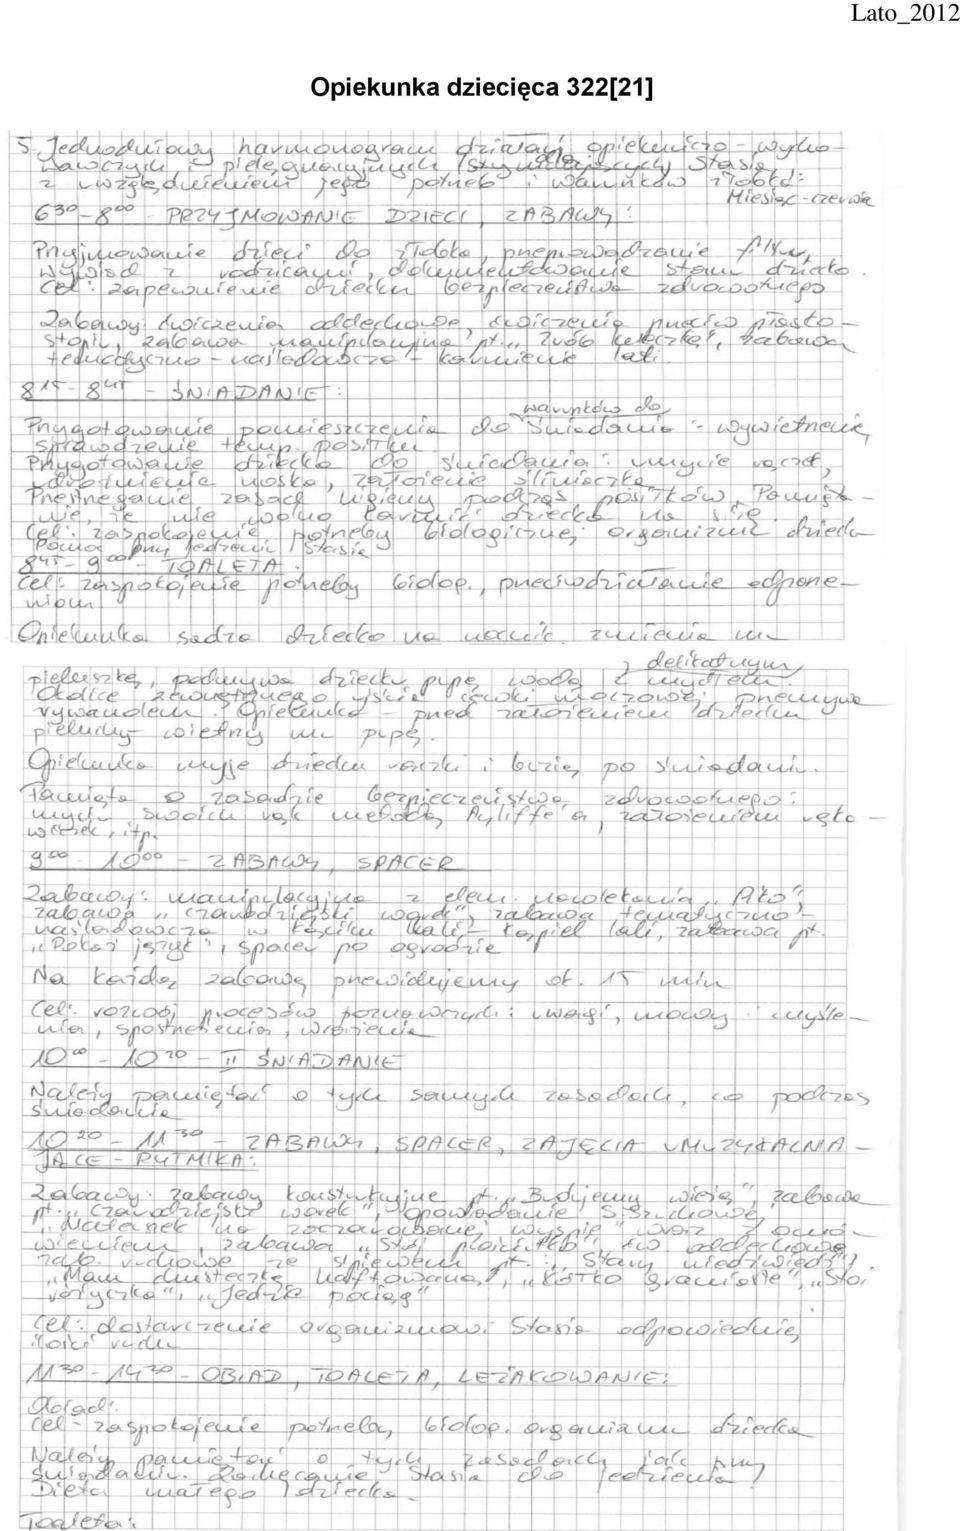 Lato_2012
Opiekunka dziecięca 322[21]
5. Jednodniowy harmonogram działań opiekuńczo - wycho-
wawczych i pielęgnacyjnych Stasia
z uwzględnieniem jego potrzeb i warunków żłobka:
Miesiąc - czerwiec
6³⁰-8⁰⁰ - PRZYJMOWANIE DZIECI, ZABAWY:
Przyjmowanie dzieci do żłobka, przeprowadzanie filtru,
wywiad z rodzicami, dokumentowanie stanu dziecka.
Cel: zapewnienie dziecku bezpieczeństwa zdrowotnego
Zabawy: ćwiczenia oddechowe, ćwiczenia przeciw płasko-
stopiu, zabawa manipulacyjna pt. "Zrób kuleczkę", zabawa
tematyczno - naśladowcza - karmienie lali.
8¹⁵- 8⁴⁵ - ŚNIADANIE:
warunków do
Przygotowanie pomieszczenia do śniadania - wywietrzenie,
sprawdzenie temp. posiłku
Przygotowanie dziecka do śniadania: umycie rączek,
udrożnienie noska, założenie śliniaczka
Przestrzeganie zasad higieny podczas posiłków. Pamięta-
nie, że nie wolno karmić dziecka na siłę.
Cel: zaspokojenie potrzeby biologicznej organizmu dziecka
Pomoc przy jedzeniu Stasia
8⁴⁵- 9⁰⁰ - TOALETA.
Cel: zaspokojenie potrzeby biolog., przeciwdziałanie odparze-
niom
Opiekunka sadza dziecko na nocnik, zmienia mu
delikatnym
pieluszkę, podmywa dziecku pupę wodą z mydłem
Okolice zewnętrznego ujścia cewki moczowej przemywa
rywanolem. Opiekunka - przed założeniem dziecku
pieluchy wietrzy mu pupę.
Opiekunka myje dziecku rączki i buzię po śniadaniu.
Pamięta o zasadzie bezpieczeństwa zdrowotnego:
myciu swoich rąk metodą Ayliffe'a, założeniem ręka-
wiczek, itp.
9⁰⁰ - 10⁰⁰ - ZABAWY, SPACER
Zabawy: manipulacyjna z elem. nowolekania "Ako",
zabawa "czarodziejski worek", zabawa tematyczno-
naśladowcza w kąciku lali - kąpiel lali, zabawa pt.
"Pokaż język", spacer po ogrodzie
Na każdą zabawę przewidujemy ok. 15 min
Cel: rozwój procesów poznawczych: uwagi, mowy, myśle-
nia, spostrzeżenia, wrażenia
10⁰⁰ - 10²⁰ - II ŚNIADANIE
Należy pamiętać o tych samych zasadach, co podczas
śniadania
10²⁰ - 11³⁰ - ZABAWY, SPACER, ZAJĘCIA UMUZYKALNIA-
JĄCE - RYTMIKA:
Zabawy: zabawy konstrukcyjne pt. "Budujemy wieżę", zabawa
pt. "Czarodziejski worek", opowiadanie S. Szuchowej
"Natenek na zaczarowanej wyspie" wraz z omó-
wieniem, zabawa ćw. oddechowe
zab. ruchowe ze śpiewem pt.: "Stary niedźwiedź",
"Mam chusteczkę haftowaną", "Kółko graniaste", "Stoi
różyczka", "Jedzie pociąg"
Cel: dostarczenie organizmowi Stasia odpowiedniej
ilości ruchu
11³⁰ - 14³⁰ - OBIAD, TOALETA, LEŻAKOWANIE:
Obiad:
Cel - zaspokojenie potrzeby biolog. organizmu dziecka
Należy pamiętać o tych zasadach jak przy
śniadaniu. Zachęcanie Stasia do jedzenia!
Dieta małego dziecka.
Toaleta: